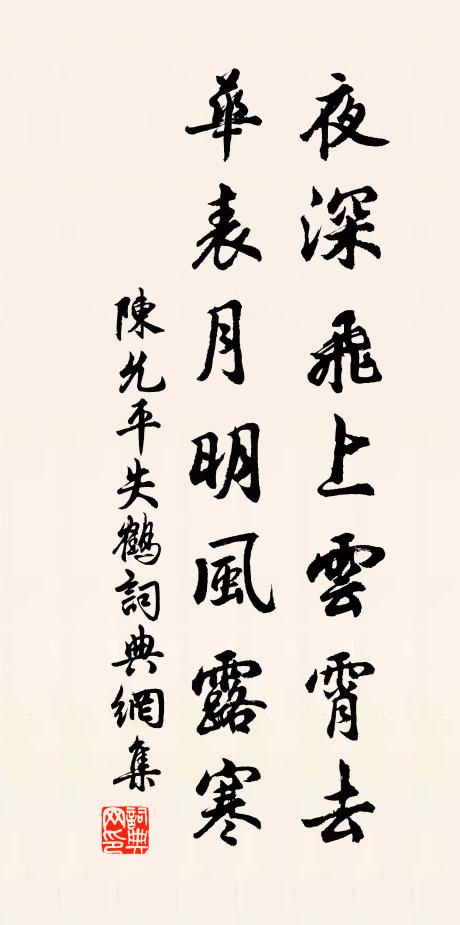 夜深飛上雲霄去
華表月明風露寒
陳允平失鶴詞典網集
詞典网印